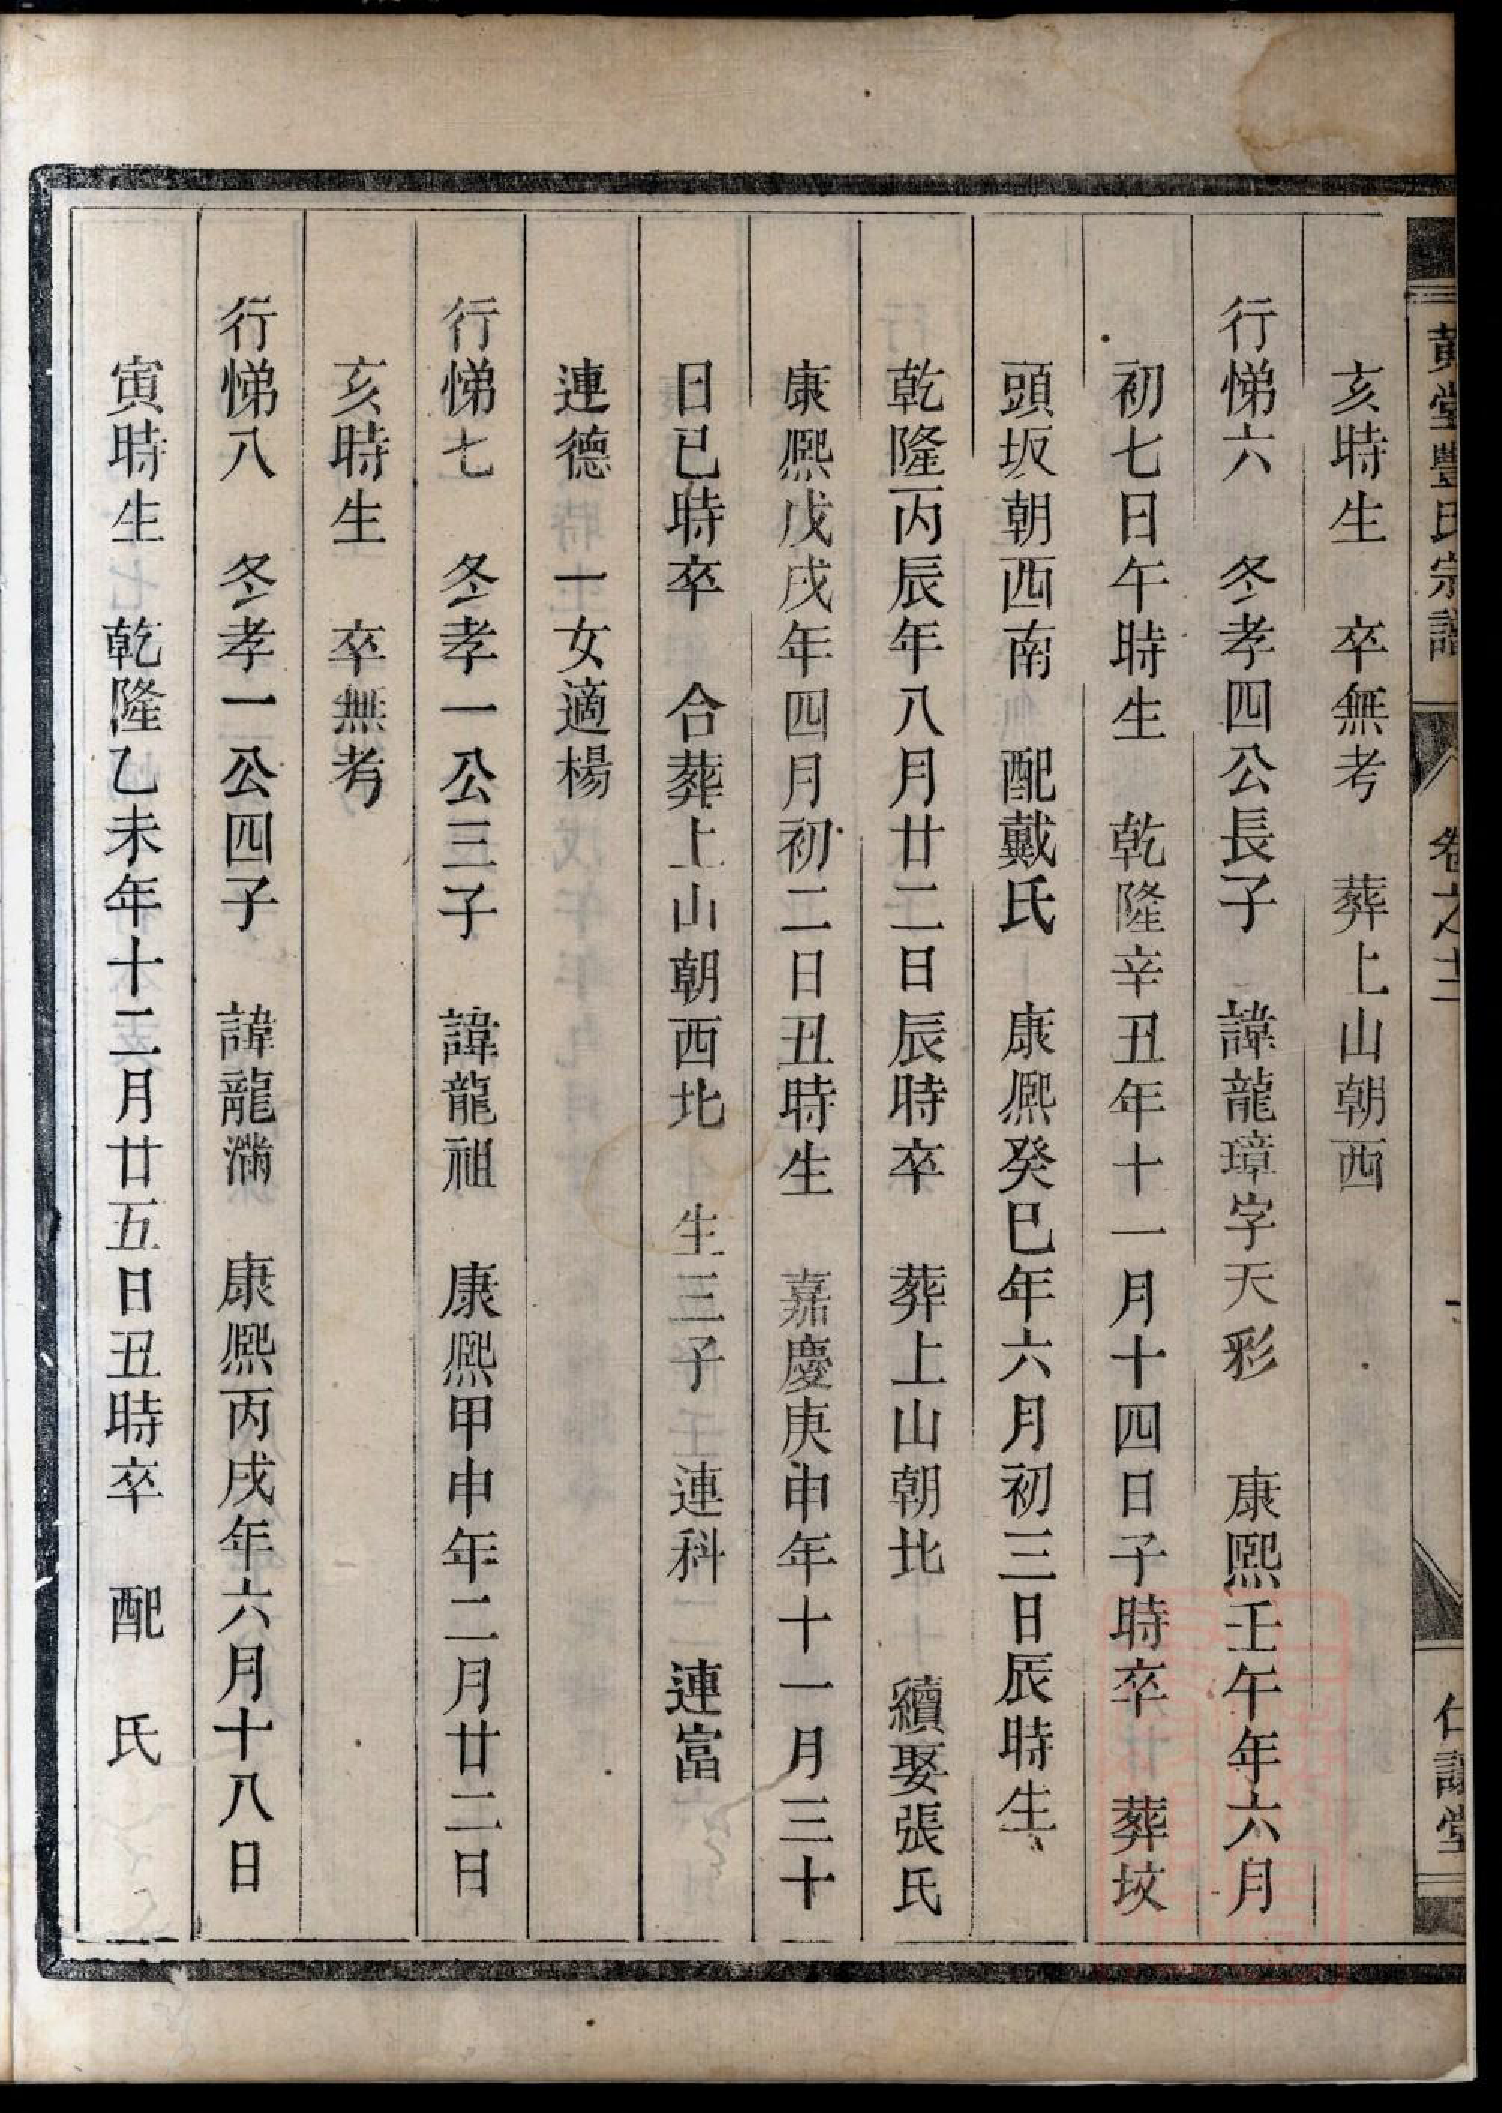 黃堂豐氏宗譜 卷之十二 仁讓堂
亥時生 卒無考 葬上山朝西
行悌六 冬孝四公長子 諱龍璋字天彩 康熙壬午年六月
初七日午時生 乾隆辛丑年十一月十四日子時卒 葬坟
頭坂朝西南 配戴氏 康熙癸巳年六月初三日辰時生
乾隆丙辰年八月廿二日辰時卒 葬上山朝北 續娶張氏
康熙戊戌年四月初二日丑時生 嘉慶庚申年十一月三十
日巳時卒 合葬上山朝西北 生三子 連科 連富
連德 一女適楊
行悌七 冬孝一公三子 諱龍祖 康熙甲申年二月廿二日
亥時生 卒無考
行悌八 冬孝一公四子 諱龍滿 康熙丙戌年六月十八日
寅時生 乾隆乙未年十二月廿五日丑時卒 配 氏